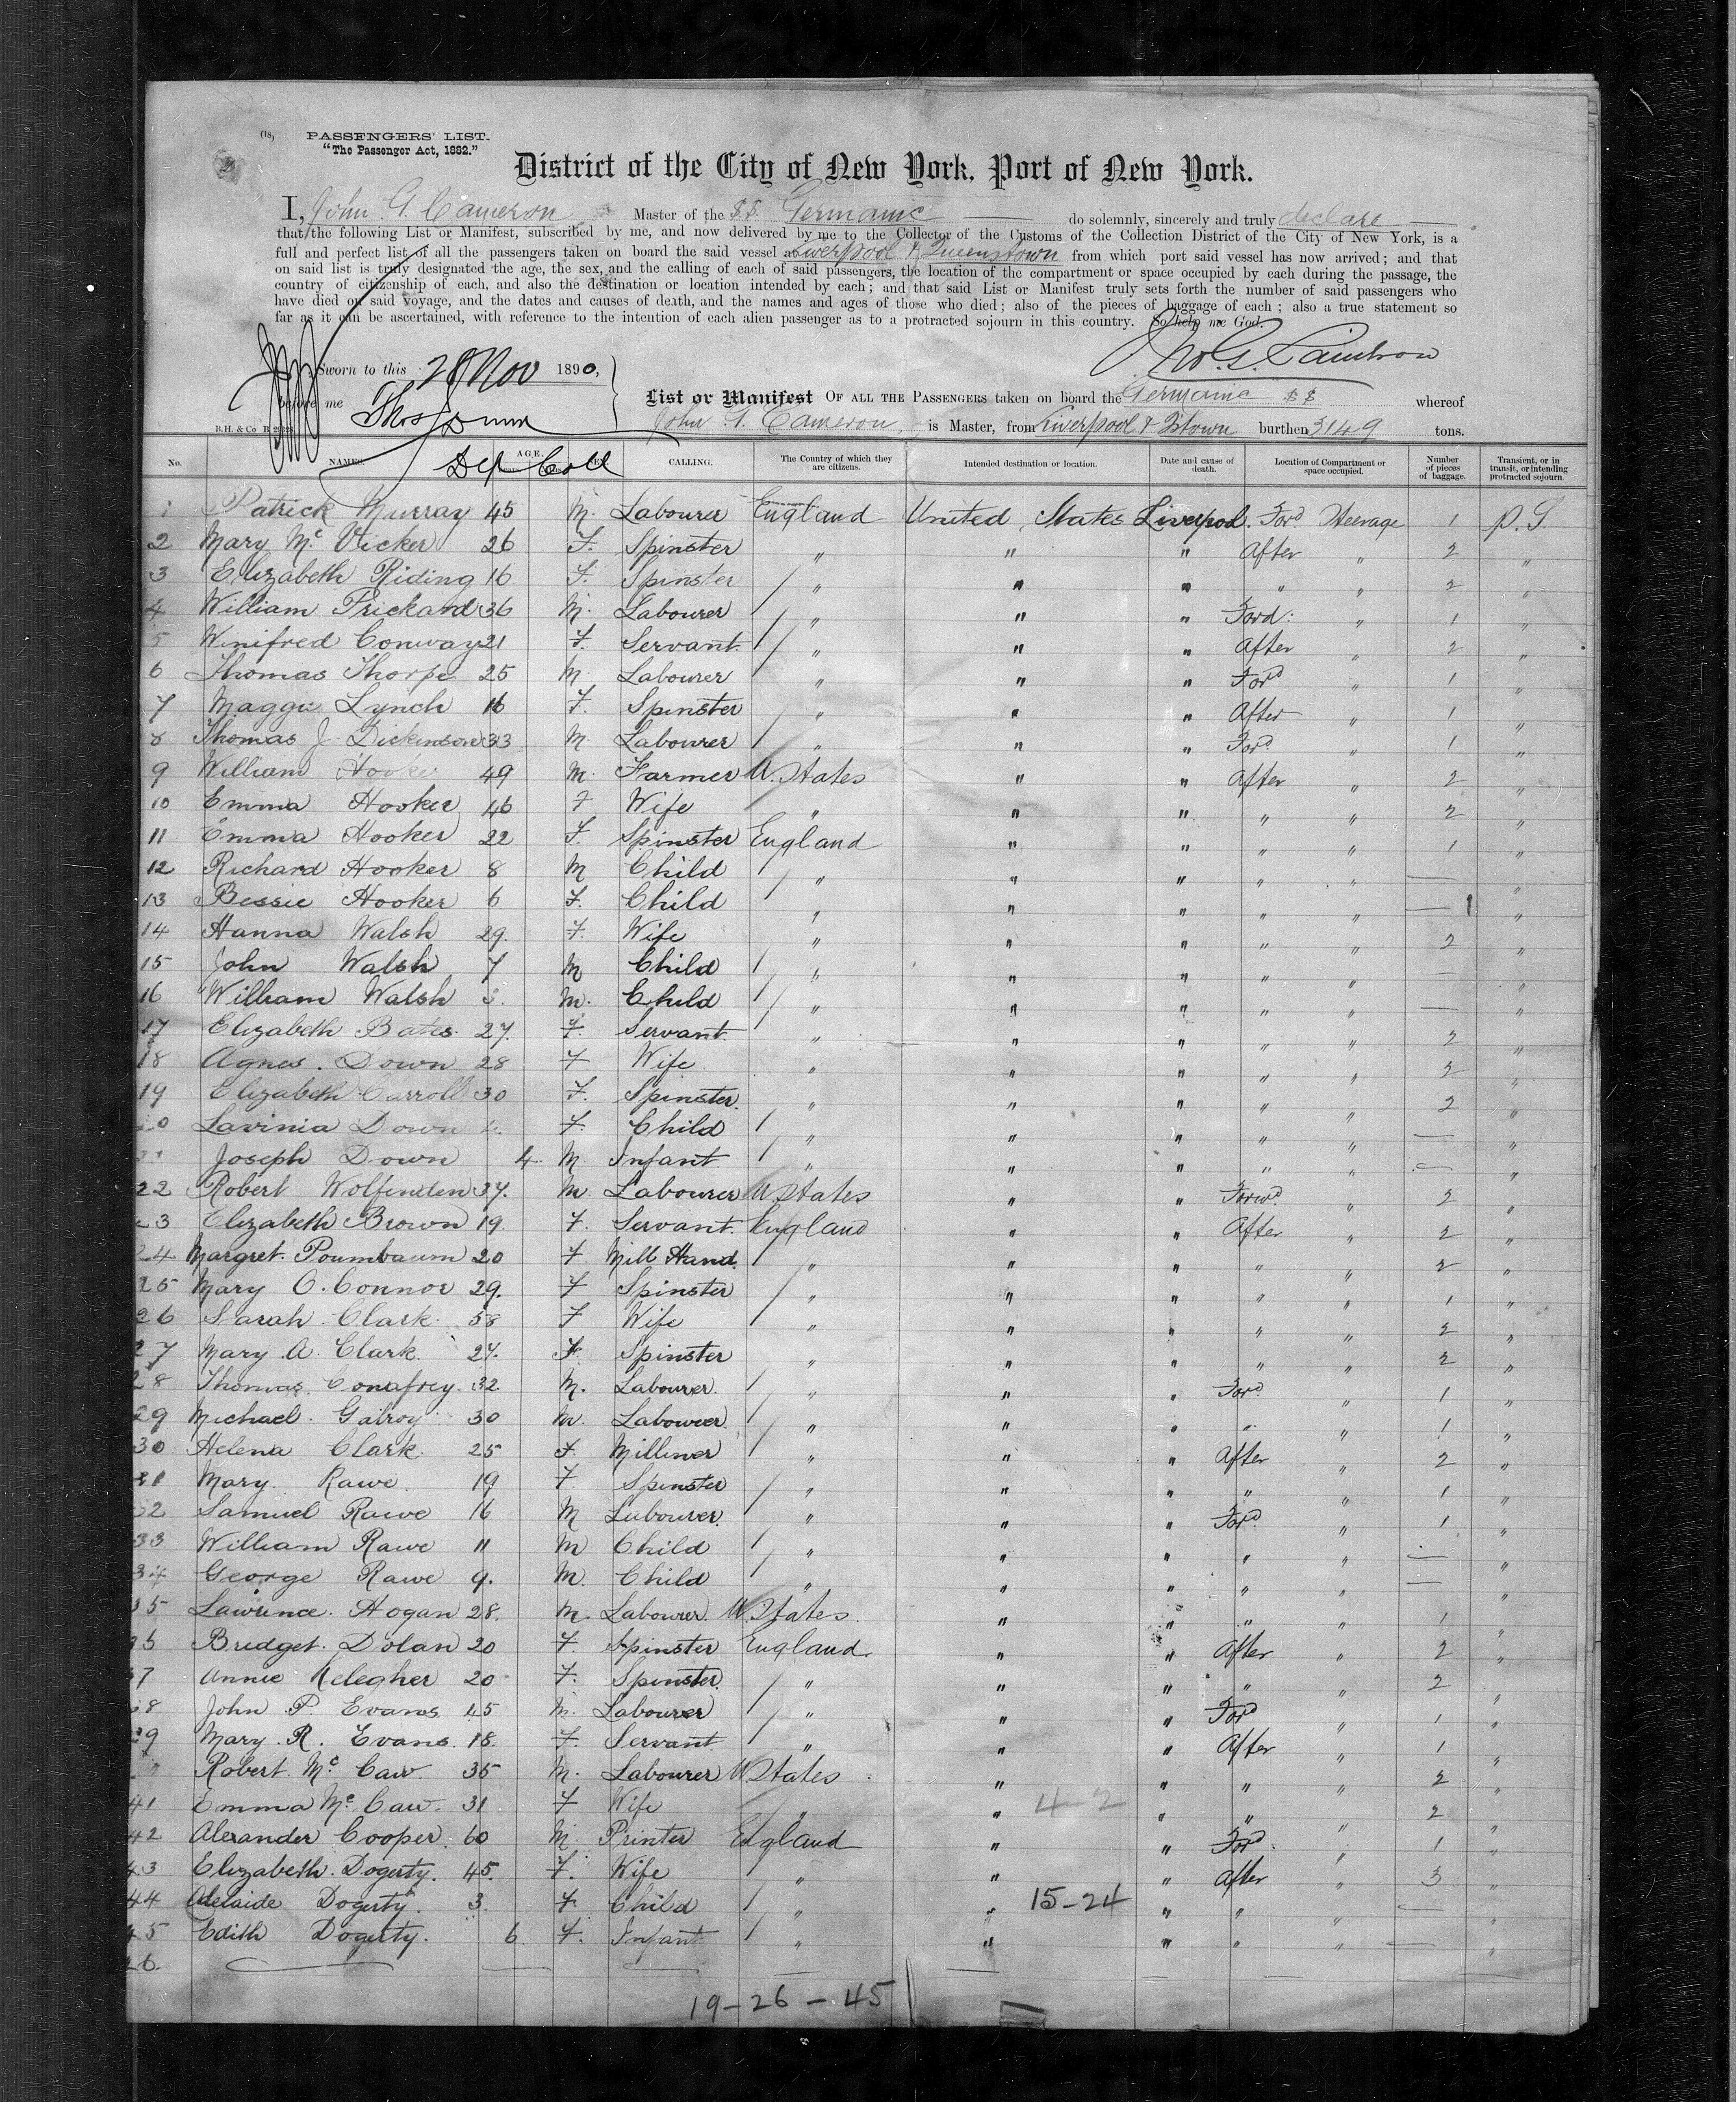 (18)
PASSENGERS' LIST.
"The Passenger Act, 1882."
District of the City of New York, Port of New York.
I, John G. Cameron Master of the S.S. Germanic do solemnly, sincerely and truly declare
that the following List or Manifest, subscribed by me, and now delivered by me to the Collector of the Customs of the Collection District of the City of New York, is a
full and perfect list of all the passengers taken on board the said vessel at Liverpool & Queenstown from which port said vessel has now arrived; and that
on said list is truly designated the age, the sex, and the calling of each of said passengers, the location of the compartment or space occupied by each during the passage, the
country of citizenship of each, and also the destination or location intended by each; and that said List or Manifest truly sets forth the number of said passengers who
have died on said voyage, and the dates and causes of death, and the names and ages of those who died; also of the pieces of baggage of each; also a true statement so
far as it can be ascertained, with reference to the intention of each alien passenger as to a protracted sojourn in this country. So help me God.
Jno. G. Cameron
Sworn to this 28 Nov 1890,
before me
List or Manifest OF ALL THE PASSENGERS taken on board the Germanic SS whereof
John G. Cameron is Master, from Liverpool & Qtown burthen 3149 tons.
B.H. & Co
Dep Coll
No. NAMES. AGE. SEX. CALLING. The Country of which they are citizens. Intended destination or location. Date and cause of death. Location of Compartment or space occupied. Number of pieces of baggage. Transient, or in transit, or intending protracted sojourn.
1 Patrick Murray 45 M. Labourer England United States Liverpool Ford Steerage 1 P.S.
2 Mary Mc Vicker 26 F. Spinster " " " After " 2 "
3 Elizabeth Riding 16 F. Spinster " " " " " 2 "
4 William Prickard 36 M. Labourer " " " Ford: " 1 "
5 Winifred Conway 21 F. Servant " " " After " 2 "
6 Thomas Thorpe 25 M. Labourer " " " Ford " 1 "
7 Maggie Lynch 16 F. Spinster " " " After " 1 "
8 Thomas J. Dickinson 33 M. Labourer " " " Ford " 1 "
9 William Hooker 49 M. Farmer U. States " " After " 2 "
10 Emma Hooker 46 F Wife " " " " " 2 "
11 Emma Hooker 22 F. Spinster England " " " " 1 "
12 Richard Hooker 8 M Child " " " " " — "
13 Bessie Hooker 6 F. Child " " " " " — 1 "
14 Hanna Walsh 29. F. Wife " " " " " 2 "
15 John Walsh 7 M Child " " " " " — "
16 William Walsh M. Child " " " " " — "
17 Elizabeth Bates 27. F. Servant " " " " " 2 "
18 Agnes. Down 28 F Wife " " " " " 2 "
19 Elizabeth Carroll 30 F. Spinster. " " " " " 2 "
20 Lavinia Down F. Child " " " " " — "
21 Joseph Down 4 M. Infant " " " " " — "
22 Robert Wolfenden 37. M. Labourer U. States " " Forwd " 2 "
23 Elizabeth Brown 19. F. Servant. England " " After " 2 "
24 Margret. Poumbaum 20 F Mill Hand. " " " " " 2 "
25 Mary O. Connor 29. F Spinster " " " " " 1 "
26 Sarah Clark. 58 F Wife " " " " " 2 "
27 Mary A. Clark. 27. F. Spinster " " " " " 2 "
28 Thomas Conafrey. 32 M. Labourer. " " " Ford " 1 "
29 Michael. Galroy 30 M. Labourer " " " " " 1 "
30 Helena Clark. 25 F. Milliner " " " After " 2 "
31 Mary. Rawe 19 F. Spinster " " " " " 1 "
32 Samuel Rawe 16 M Labourer. " " " Ford " 1 "
33 William Rawe 11 M Child " " " " " — "
34 George Rawe 9. M. Child " " " " " — "
35 Lawrence. Hogan 28. M. Labourer. U. States. " " " " 1 "
36 Bridget. Dolan 20 F Spinster England. " " After " 2 "
37 Annie Kelegher 20 F. Spinster. " " " " " 2 "
38 John P. Evans 45 M. Labourer " " " Ford " 1 "
39 Mary. R. Evans. 18. F. Servant " " " After " 1 "
Robert. Mc Caw. 35 M. Labourer U. States " " " " 2 "
41 Emma Mc Caw. 31 F Wife " " " " " 2 "
4-2
42 Alexander Cooper. 60 M. Printer England " " Ford " 1 "
43 Elizabeth. Dogerty. 45. F. Wife " " " After " 3 "
44 Adelaide Dogerty. 3. F. Child " " " " " — "
15-24
45 Edith Dogerty. 6 F. Infant " " " " " — "
46.
19-26-45